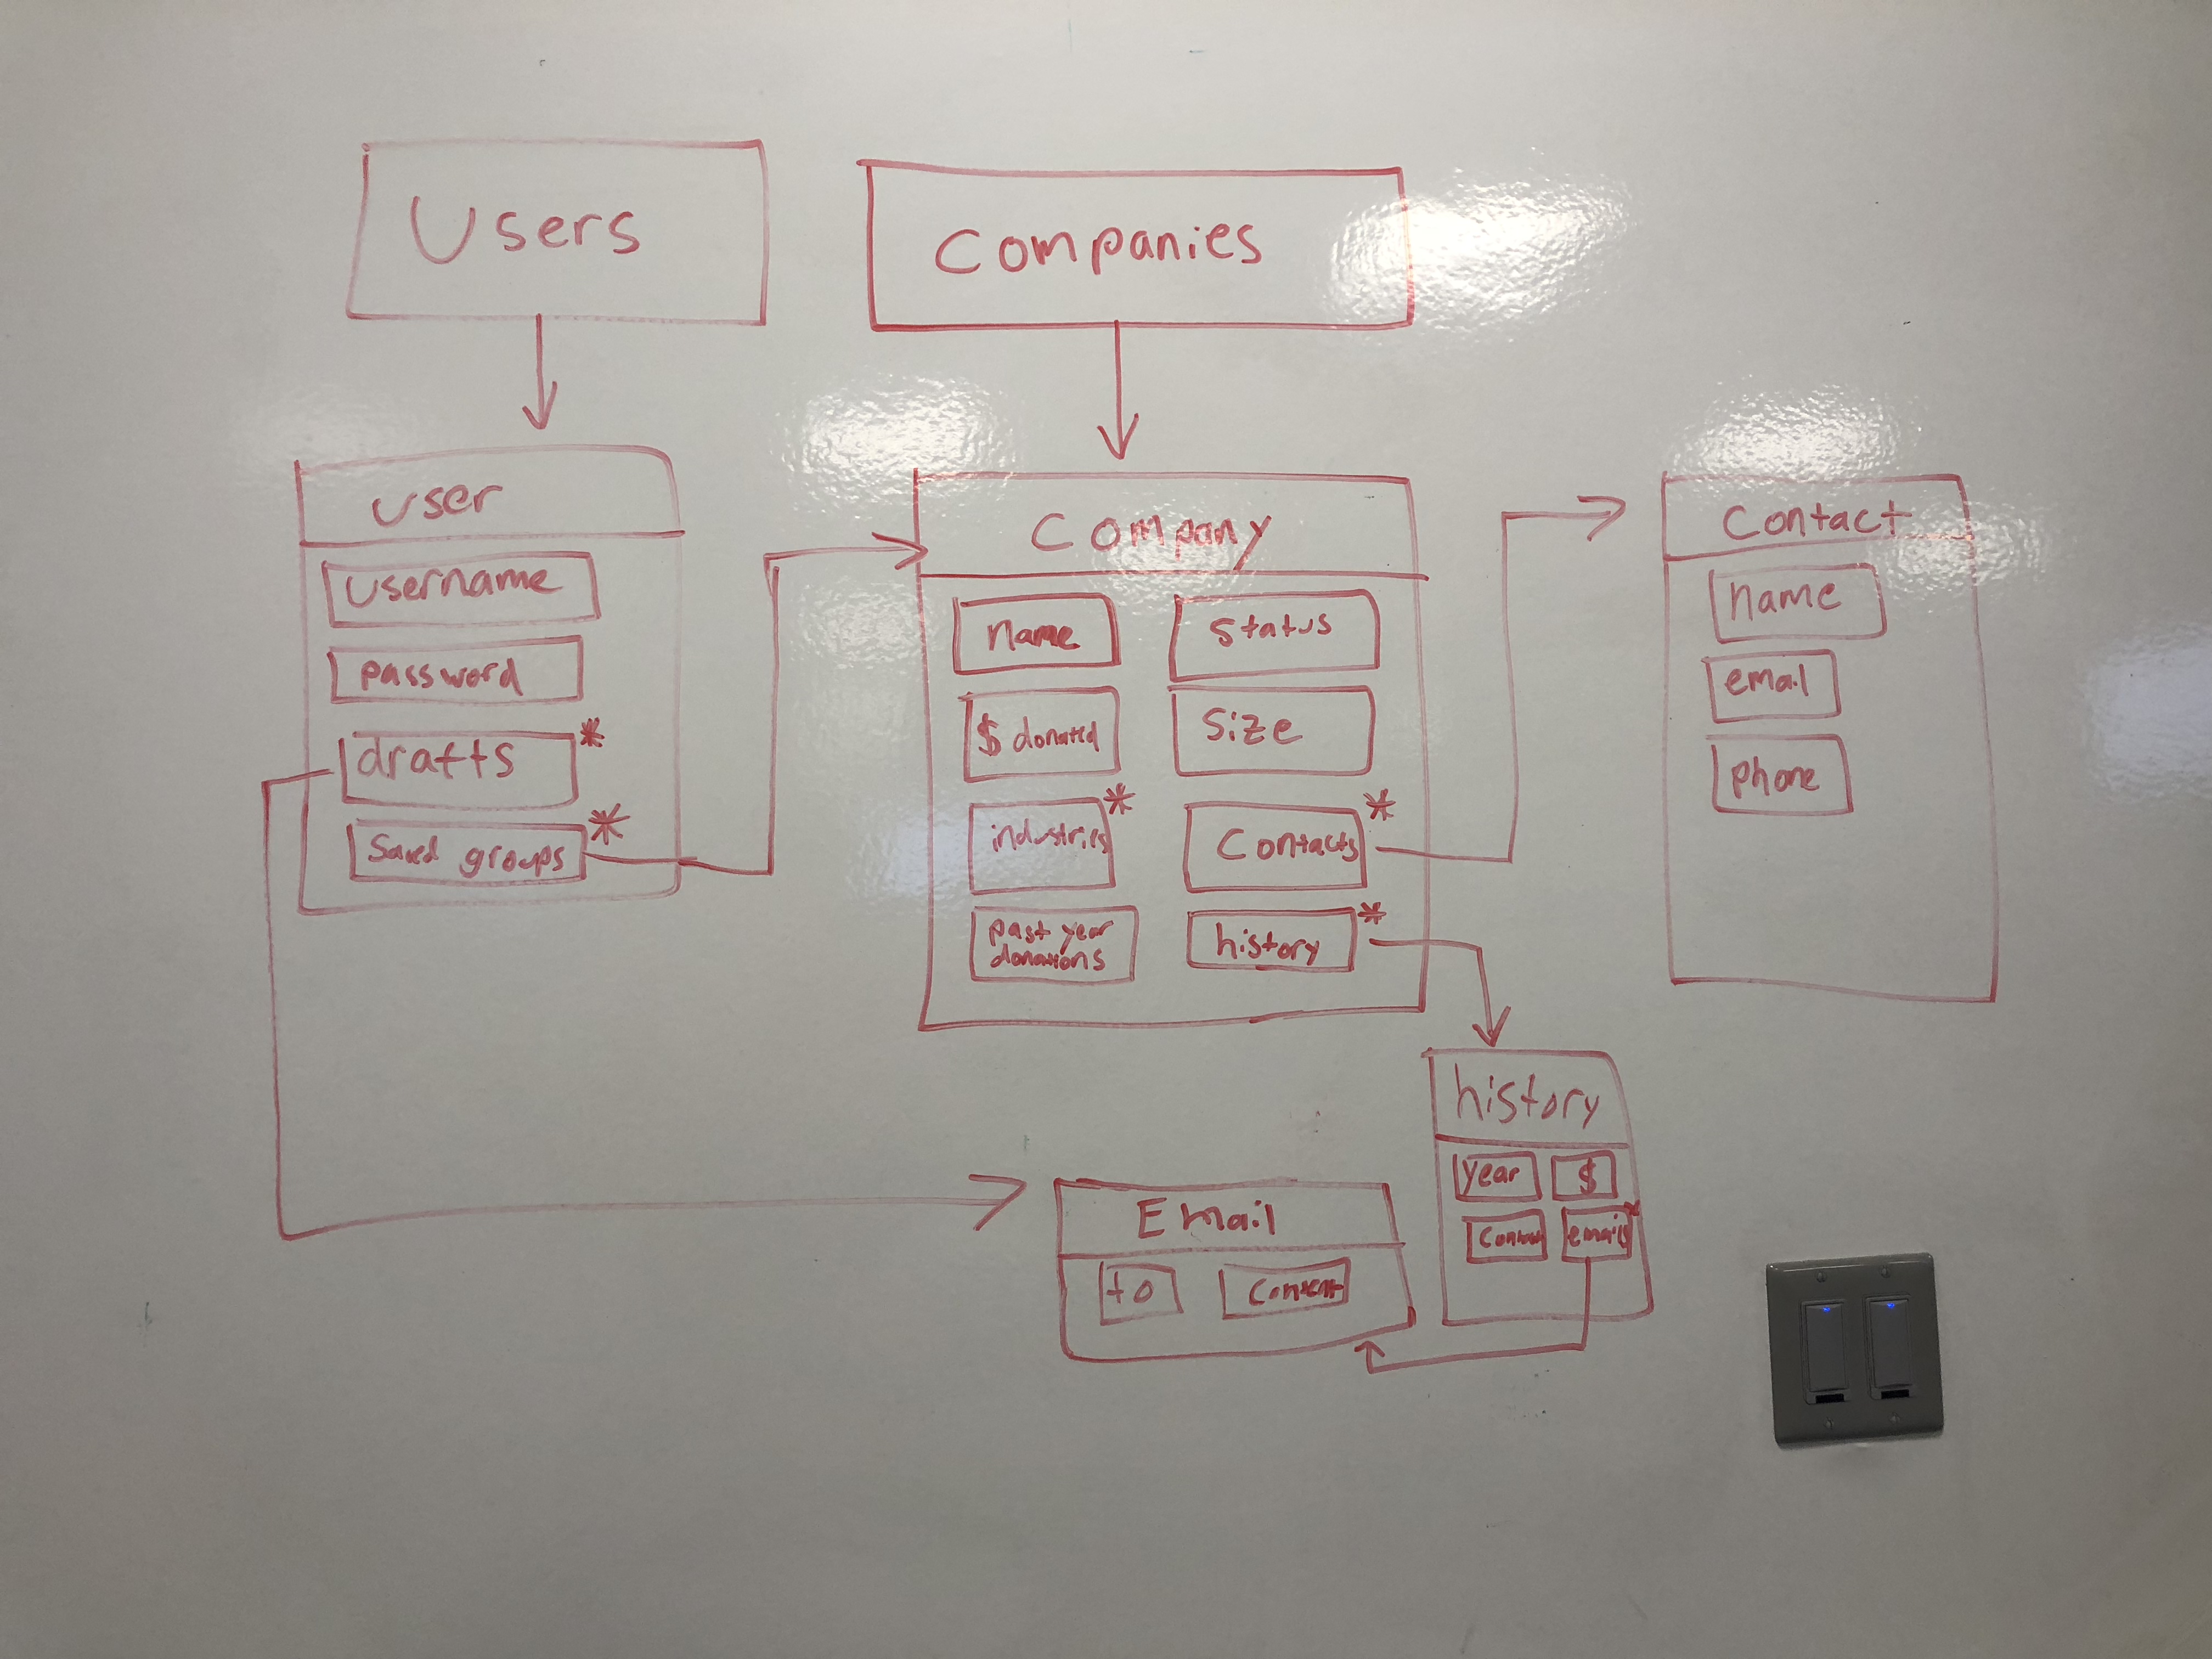 Users
Companies
user
username
password
drafts *
Saved groups *
Company
name
status
$ donated
size
industries *
Contacts *
past year
donations
history *
Contact
name
email
phone
history
year
$
emails *
Email
to
Content